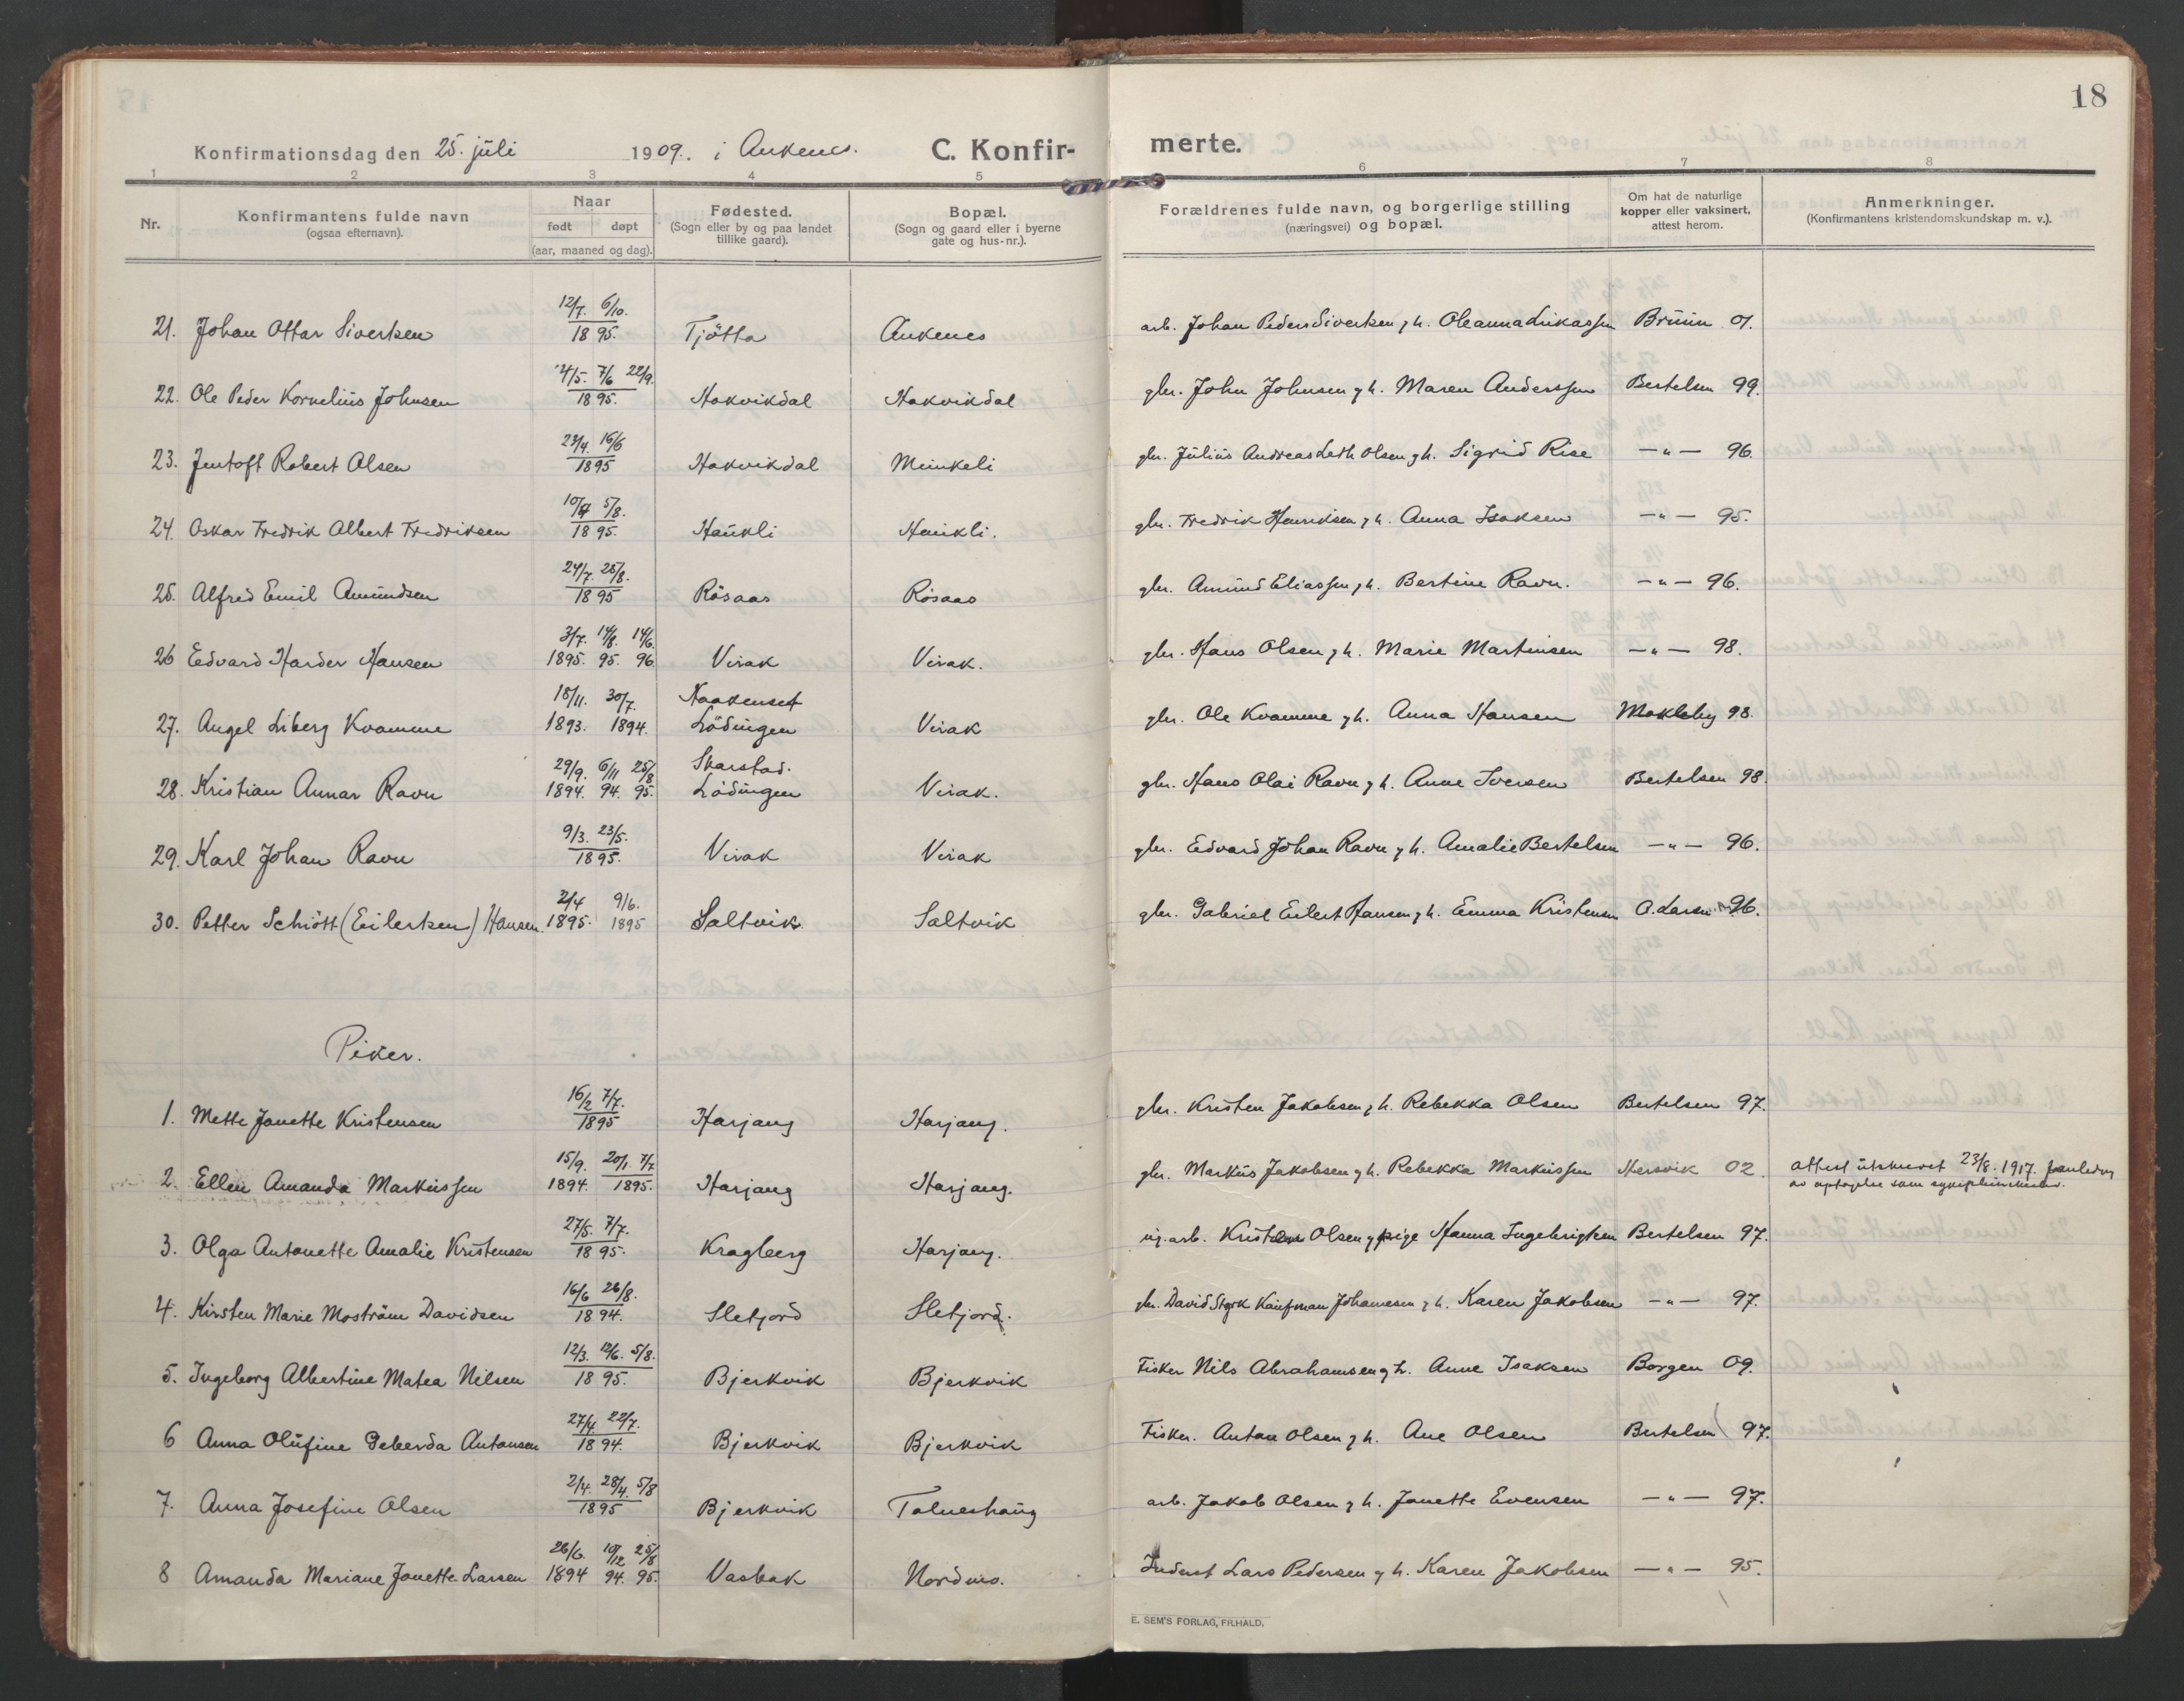 18
Konfirmationsdag den 25. juli 1909. i Ankenes. C. Konfirmerte.
1 2 3 4 5 6 7 8
Nr. Konfirmantens fulde navn (ogsaa efternavn). Naar født døpt (aar, maaned og dag). Fødested. (Sogn eller by og paa landet tillike gaard). Bopæl. (Sogn og gaard eller i byerne gate og hus-nr.). Forældrenes fulde navn, og borgerlige stilling (næringsvei) og bopæl. Om hat de naturlige kopper eller vaksinert, attest herom. Anmerkninger. (Konfirmantens kristendomskundskap m. v.).
21. Johan Ottar Sivertsen 12/7. 6/10. 1895. Tjötta Ankenes arb. Johan Peder Sivertsen g h. Oleanna Lukassen Brüün 01.
22. Ole Peder Kornelius Johnsen 4/5. 7/6 22/9. 1895. Hakvikdal Hakvikdal gbr. John Johnsen g h. Maren Anderssen Bertelsen 99.
23. Jentoft Robert Olsen 23/4. 16/6 1895 Hakvikdal Meinkeli gbr. Julius Andreas Leth Olsen g h. Sigrid Rise -"- 96.
24. Oskar Fredrik Albert Fredriksen 10/7 5/8. 1895. Haukli Haukli. gbr. Fredrik Henriksen g h. Anna Isaksen -"- 95.
25. Alfred Emil Amundsen 24/7. 25/8. 1895 Rösaas Rösaas gbr. Amund Eliassen g h. Bertine Ravn. -"- 96.
26 Edvard Harder Hansen 3/7. 14/8. 14/6. 1895. 95. 96. Virak Virak. gbr. Hans Olsen g h. Marie Martinsen -"- 98.
27. Angel Liberg Kvamme 18/11. 30/7. 1893. 1894. Haakenset Lödingen Virak gbr. Ole Kvamme g h. Anna Hansen Mokleby 98.
28. Kristian Annar Ravn 29/9. 6/11 25/8 1894. 94. 95. Skarstad. Lödingen Virak. gbr. Hans Olai Ravn g h. Anne Iversen Bertelsen 98.
29. Karl Johan Ravn 9/3. 23/5. 1895. Virak Virak gbr. Edvard Johan Ravn g h. Amalie Bertelsen -"- 96.
30. Petter Schiött (Eilertsen) Hansen. 2/4 9/6. 1895. 1895 Saltvik Saltvik gbr. Gabriel Eilert Hansen g h. Emma Kristensen O. Larsen 96.
Piker.
1. Mette Janette Kristensen 16/2 7/7. 1895 Harjang Harjang. gbr. Kristen Jakobsen g h. Rebekka Olsen Bertelsen 97.
2. Ellen Amanda Markussen 15/9. 20/1. 7/7 1894. 1895. Harjang Harjang. gbr. Markus Jakobsen g h. Rebekka Markussen Hersvik 02. attest utskrevet 23/8. 1917.
3. Olga Antonette Amalie Kristensen 27/5. 7/7. 1895. Kragberg Harjang. ug. arb. Kristen Olsen g pige Hanna Ingebrigtsen Bertelsen 97.
4. Kirsten Marie Moström Davidsen 16/6 26/8. 1894. Sletjord Sletjord. gbr. David Styrk Kaufman Johannesen g h. Karen Jakobsen -"- 97.
5. Ingeborg Albertine Matea Nilsen 12/3. 12/6. 5/8. 1895. Bjerkvik Bjerkvik Fisker Nils Abrahamsen g h. Anne Isaksen Borgen 09.
6 Anna Olufine Geberda Antonsen 27/4. 22/7. 1894. Bjerkvik Bjerkvik Fisker. Anton Olsen g h. Ane Olsen Bertelsen 97.
7. Anna Josefine Olsen 2/4. 28/4. 5/8 1895 Bjerkvik Talneshaug arb. Jakob Olsen g h. Janette Evensen -"- 97.
8 Amanda Mariane Janette Larsen 26/6. 10/12 25/8 1894 94. 95. Vasbak Nordmo. Inderst Lars Pedersen g h. Karen Jakobsen -"- 95.
E. SEM'S FORLAG, FR.HALD.